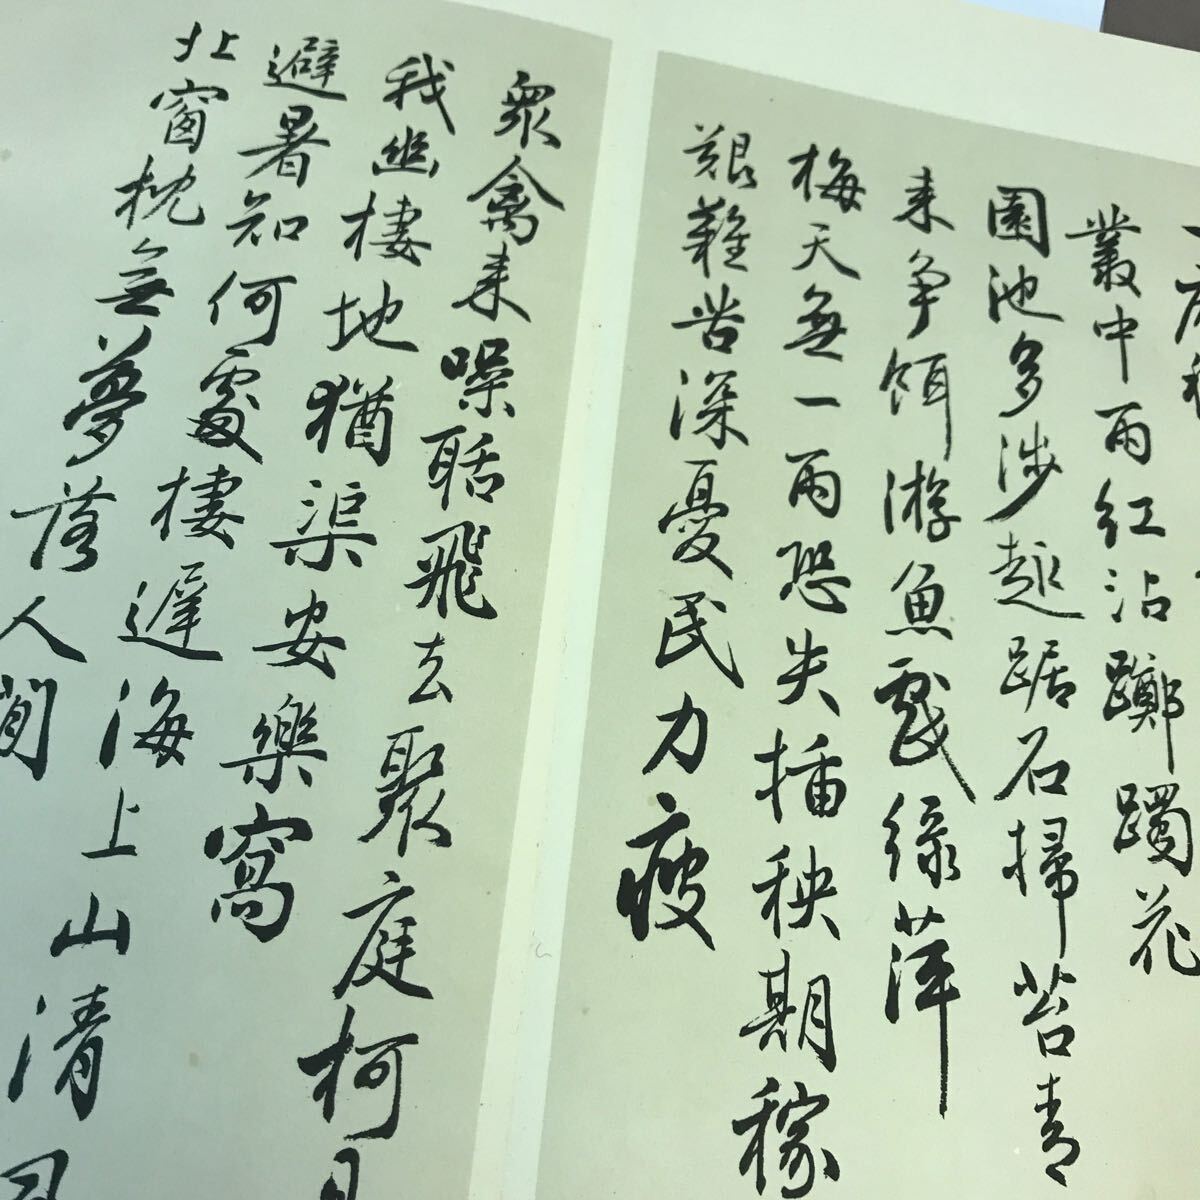 叢中雨紅沾躑躅花
園池多涉趣踞石掃苔青
来争餌游魚戲緑萍
梅天無一雨恐失插秧期稼
艱難苦深憂民力疲
衆禽来噪聒飛去聚庭柯
我幽棲地猶渠安樂窩
避暑知何處棲遲海上山清
北窗枕無夢落人間